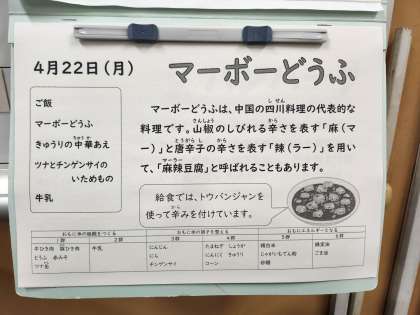 4月22日(月)
マーボーどうふ
ご飯
マーボーどうふ
きゅうりの中華あえ
ツナとチンゲンサイの
いためもの
牛乳
マーボーどうふは、中国の四川料理の代表的な
料理です。山椒のしびれる辛さを表す「麻(マ
ー)」と唐辛子の辛さを表す「辣(ラー)」を用い
て、「麻辣豆腐」と呼ばれることもあります。
給食では、トウバンジャンを
使って辛みを付けています。
おもに体の組織をつくる
おもに体の調子を整える
おもにエネルギーとなる
1群 2群 3群 4群 5群 6群
牛ひき肉 豚ひき肉 牛乳 にんじん たまねぎ しょうが 精白米
とうふ 赤みそ にら にんにく きゅうり じゃがいもでん粉 ごま油
ツナ缶 チンゲンサイ コーン 砂糖